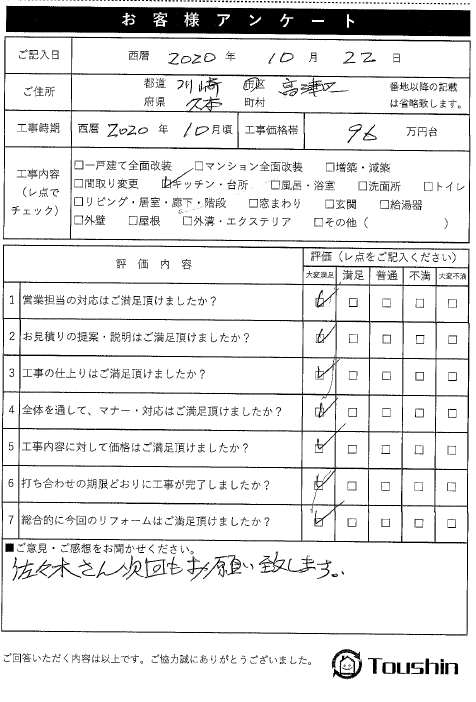 お客様アンケート
ご記入日 西暦 2020 年 10 月 22 日
ご住所 都道府県 川崎 市区町村 高津区 番地以降の記載は省略致します。
久本
工事時期 西暦 2020 年 10 月頃 工事価格帯 96 万円台
工事内容（レ点でチェック）
□一戸建て全面改装 □マンション全面改装 □増築・減築
□間取り変更 ☑キッチン・台所 □風呂・浴室 □洗面所 □トイレ
□リビング・居室・廊下・階段 □窓まわり □玄関 □給湯器
□外壁 □屋根 □外溝・エクステリア □その他（ ）
評価内容 評価（レ点をご記入ください）
大変満足 満足 普通 不満 大変不満
1 営業担当の対応はご満足頂けましたか？ ☑ □ □ □ □
2 お見積りの提案・説明はご満足頂けましたか？ ☑ □ □ □ □
3 工事の仕上りはご満足頂けましたか？ ☑ □ □ □ □
4 全体を通して、マナー・対応はご満足頂けましたか？ ☑ □ □ □ □
5 工事内容に対して価格はご満足頂けましたか？ ☑ □ □ □ □
6 打ち合わせの期限どおりに工事が完了しましたか？ ☑ □ □ □ □
7 総合的に今回のリフォームはご満足頂けましたか？ ☑ □ □ □ □
■ご意見・ご感想をお聞かせください。
佐々木さん次回もお願い致します。
ご回答いただく内容は以上です。ご協力誠にありがとうございました。
Toushin